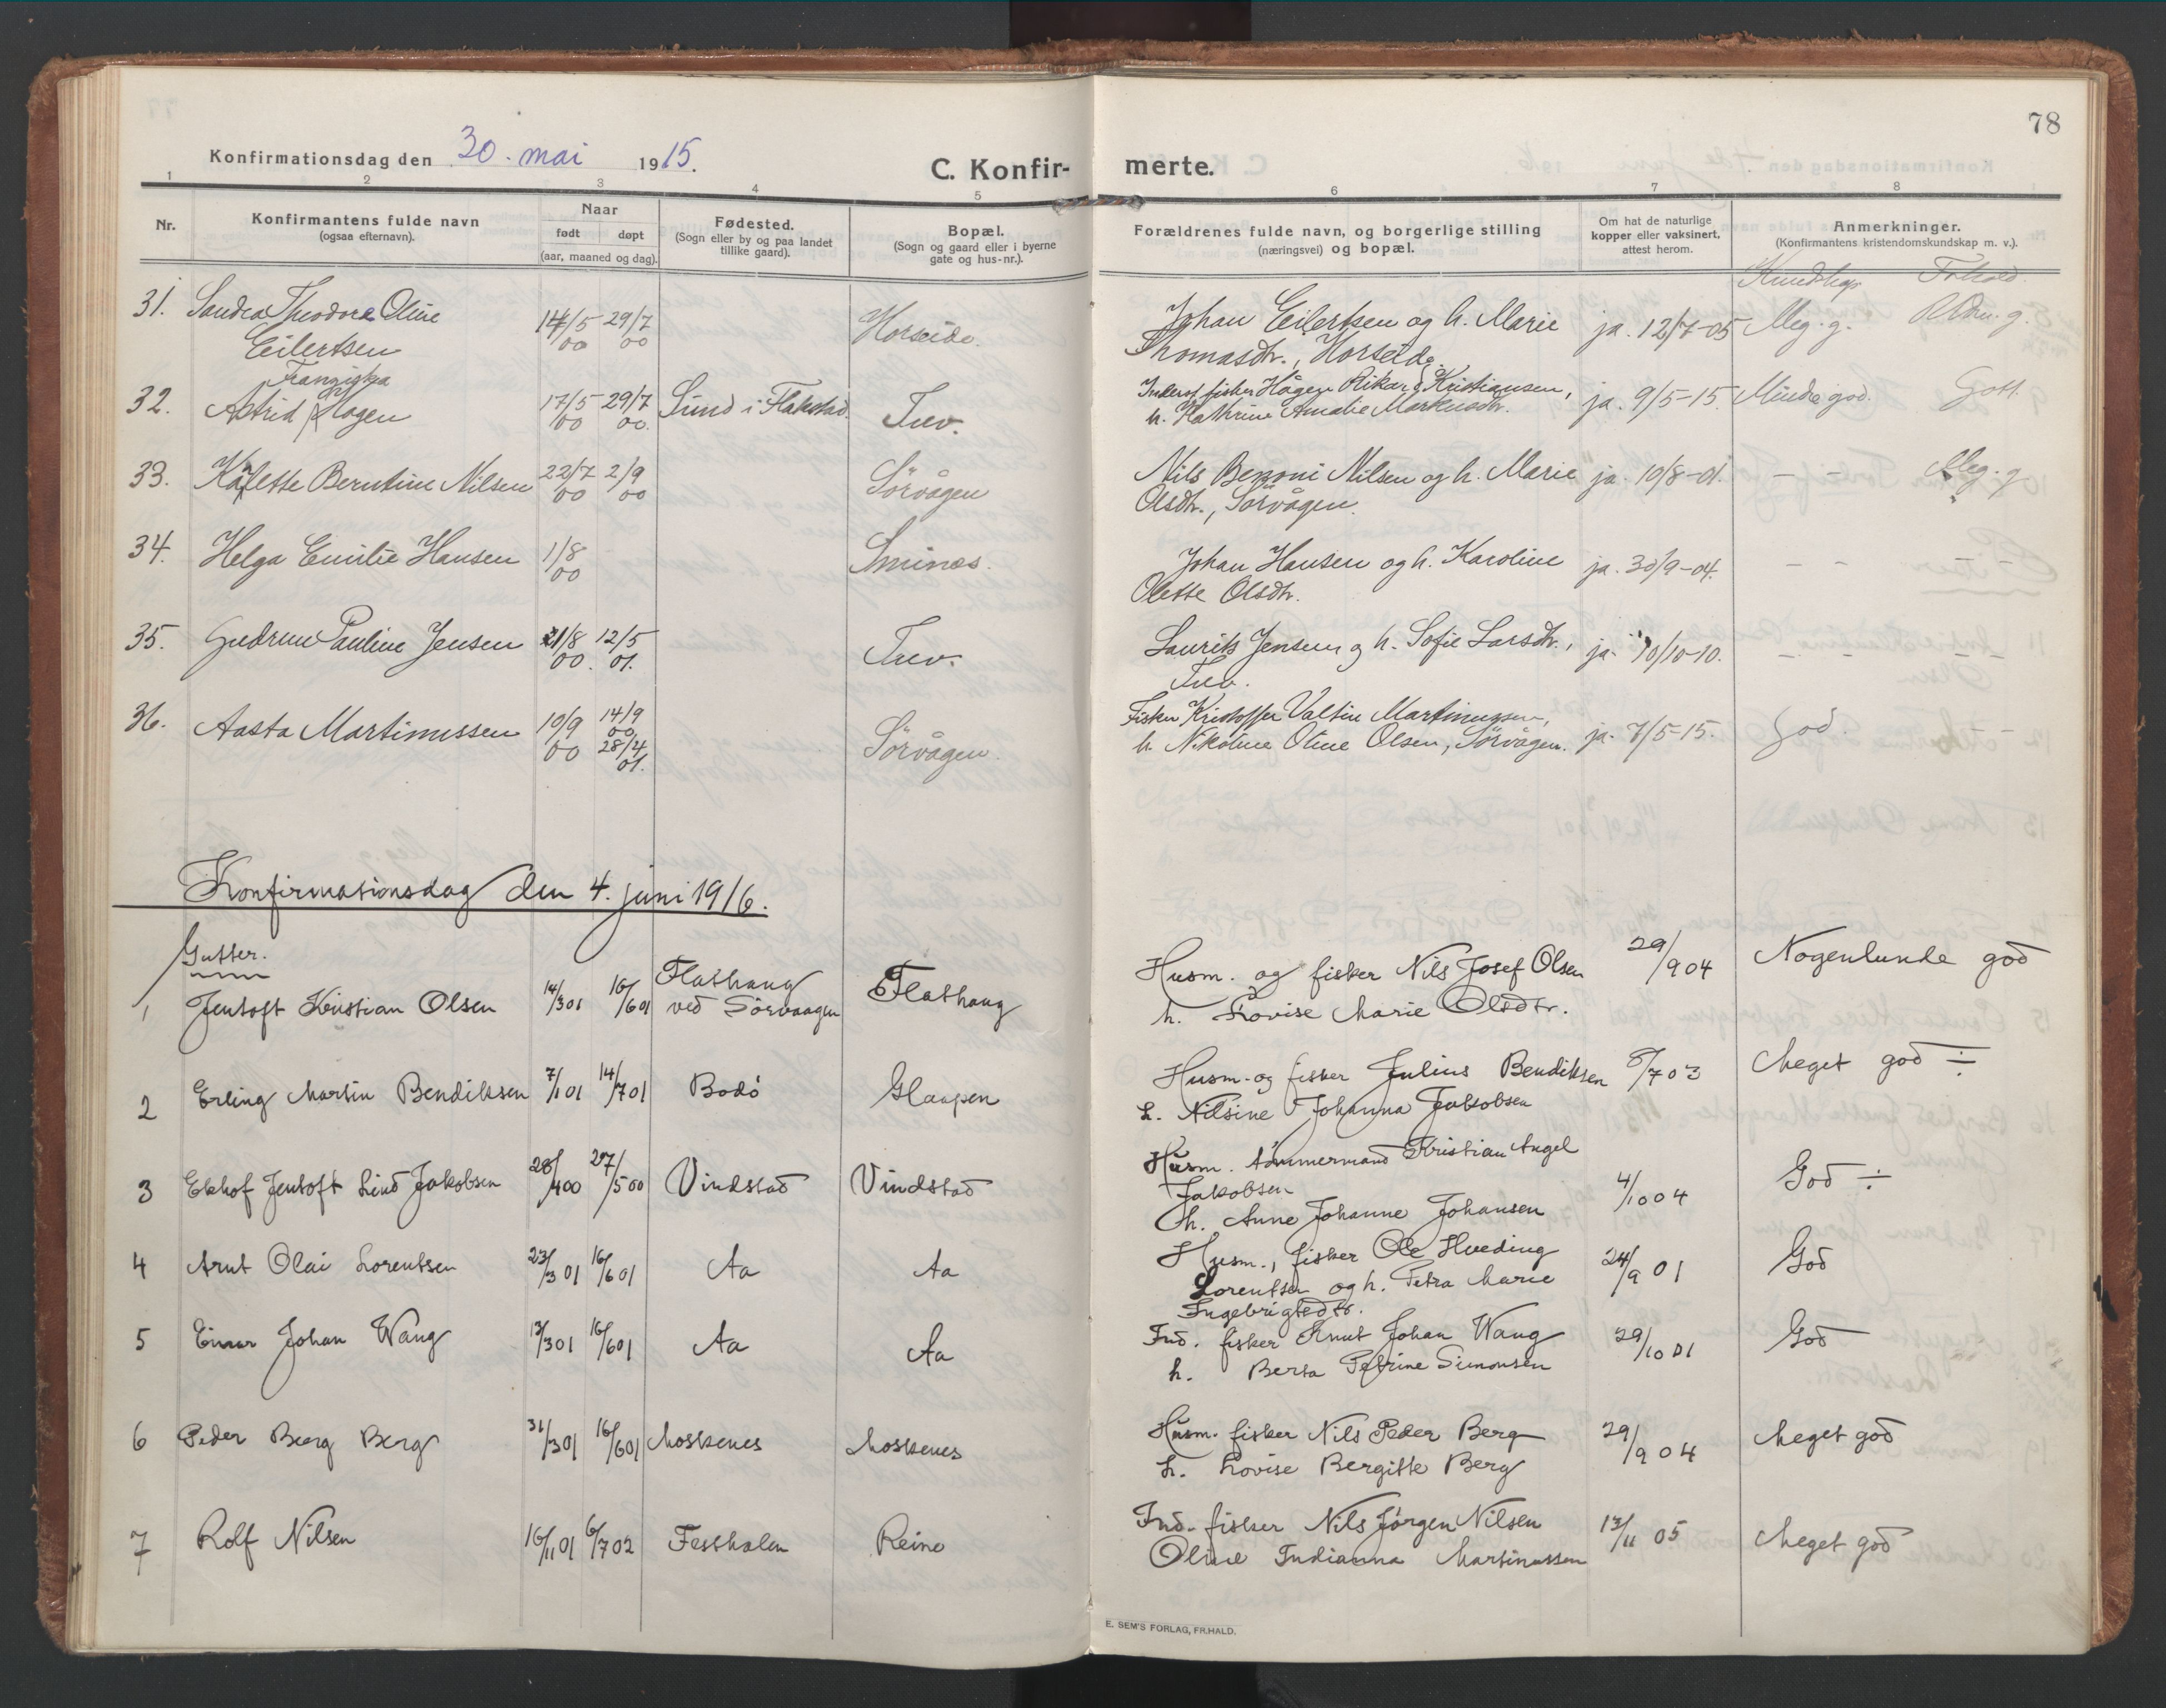 78
Konfirmationsdag den 30. mai 1915.
C. Konfir- merte.
1 2 3 4 5 6 7 8
Nr.
Konfirmantens fulde navn
(ogsaa efternavn).
Naar
født døpt
(aar, maaned og dag).
Fødested.
(Sogn eller by og paa landet
tillike gaard).
Bopæl.
(Sogn og gaard eller i byerne
gate og hus-nr.).
Forældrenes fulde navn, og borgerlige stilling
(næringsvei) og bopæl.
Om hat de naturlige
kopper eller vaksinert,
attest herom.
Anmerkninger.
(Konfirmantens kristendomskundskap m. v.).
Kundskap Forhold.
31. Sandra Theodora Oline
Eilertsen
14/5 00 29/7 00
Horseide.
Johan Eilertsen og h. Marie
Thomasdtr., Horseide.
ja. 12/7-05
Meg. g.
32. Astrid Franziska Hagen
17/5 00 29/7 00.
Sund i Flakstad
Tuv.
Inderst fisker Hågen Rikard Kristiansen,
h. Kathrine Amalie Markusdtr.
ja. 9/5-15.
Mindre god.
Godt.
33. Kåflette Berntine Nilsen
22/7 00 2/9 00
Sörvågen
Nils Benzoni Nilsen og h. Marie
Olsdtr., Sörvågen.
ja. 10/8-01.
- -
Meg. g.
34. Helga Emilie Hansen
1/8 00
Sminæs.
Johan Hansen og h. Karoline
Olette Olsdtr.
ja. 30/9-04.
- - -
35. Gudrun Pauline Jensen
21/8 00. 12/5 01.
Tuv.
Laurits Jensen og h. Sofie Larsdtr.,
Tuv.
ja. 10/10-10.
- - - -
36. Aasta Martinussen
10/9 00 14/9 00 28/4 01.
Sörvågen.
Fisker Kristoffer Valtin Martinussen,
h. Nikoline Oline Olsen, Sörvågen.
ja. 7/5-15.
God. - -
Konfirmasionsdag den 4. juni 1916.
Gutter.
1 Jentoft Kristian Olsen
14/3 01 16/6 01
Flathaug
ved Sörvaagen
Flathaug
Husm. og fisker Nils Josef Olsen
h. Lovise Marie Olsdtr.
29/9 04
Nogenlunde god
2 Erling Martin Bendiksen
7/1 01 14/7 01
Bodö
Glaapen
Husm. og fisker Julius Bendiksen
h. Nilsine Johanna Jakobsen
8/7 03
Meget god ÷
3 Ekhof Jentoft Lind Jakobsen
28/4 00 27/5 00
Vindstad
Vindstad
Husm. tömmermand Kristian Angel
Jakobsen
h. Anne Johanne Johansen
4/10 04
God ÷
4 Arnt Olai Lorentsen
23/3 01 16/6 01
Aa
Aa
Husm., fisker Ole Hveding
Lorentsen og h. Petra Marie
Ingebrigtsdtr.
24/9 01
God
5 Einar Johan Wang
13/3 01 16/6 01
Aa
Aa
Ind. fisker Knut Johan Wang
h. Berta Petrine Simonsen
29/10 01
God
6 Peder Berg Berg
31/3 01 16/6 01
Moskenes
Moskenes
Husm. fisker Nils Peder Berg
h. Lovise Bergitte Berg
29/9 04
Meget god
7 Rolf Nilsen
16/11 01 6/7 02
Festhalen
Reine
Ind. fisker Nils Jörgen Nilsen
Oline Indianna Martinussen
13/11 05
Meget god
E. SEM'S FORLAG, FR.HALD.